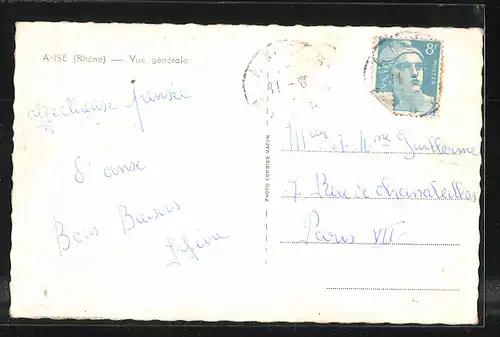 ANSE (Rhône) — Vue générale
affectueuse pensée
d'anse
Bons Baisers
Lefèvre
PHOTO COMBIER MACON
8F
POSTES
et Mme Guillerme
7 Rue de Chanaleilles
Paris VII